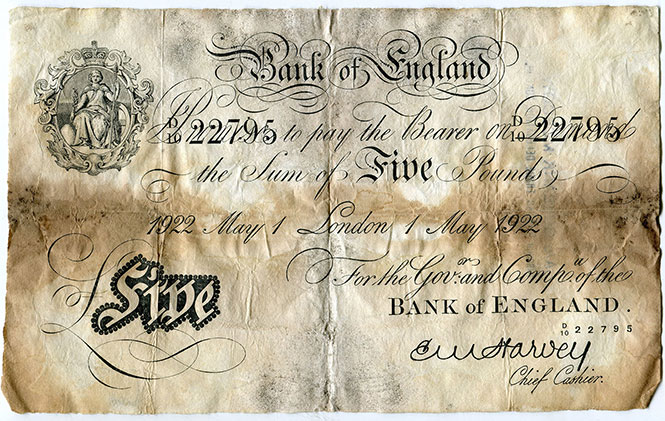 Bank of England
I Promise to pay the Bearer on Demand
D/10 22795 D/10 22795
the Sum of Five Pounds
1922 May 1 London 1 May 1922
For the Gov.r and Comp.a of the
BANK of ENGLAND.
£Five
D/10 22795
E M Harvey
Chief Cashier.